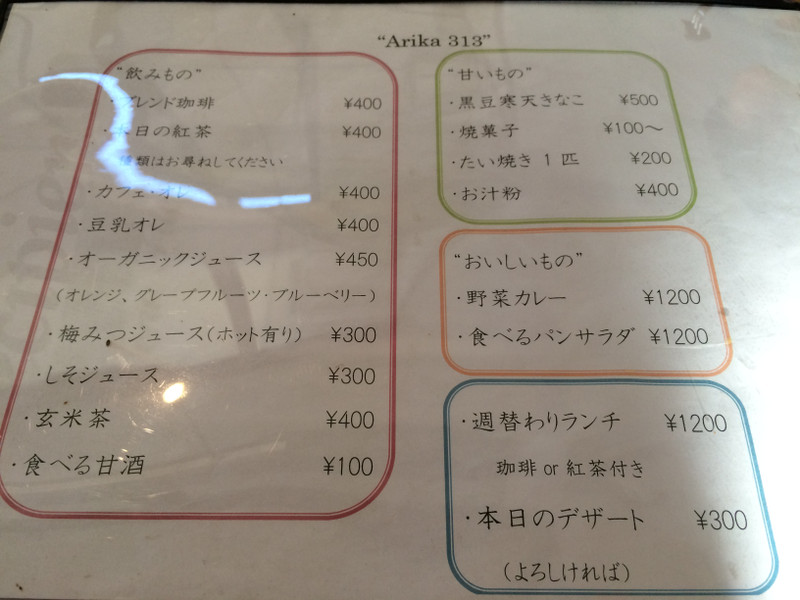 “Arika 313”
“飲みもの”
・ブレンド珈琲 ¥400
・本日の紅茶 ¥400
種類はお尋ねしてください
・カフェ・オレ ¥400
・豆乳オレ ¥400
・オーガニックジュース ¥450
(オレンジ、グレープフルーツ・ブルーベリー)
・梅みつジュース(ホット有り) ¥300
・しそジュース ¥300
・玄米茶 ¥400
・食べる甘酒 ¥100
“甘いもの”
・黒豆寒天きなこ ¥500
・焼菓子 ¥100〜
・たい焼き 1 匹 ¥200
・お汁粉 ¥400
“おいしいもの”
・野菜カレー ¥1200
・食べるパンサラダ ¥1200
・週替わりランチ ¥1200
珈琲 or 紅茶付き
・本日のデザート ¥300
(よろしければ)